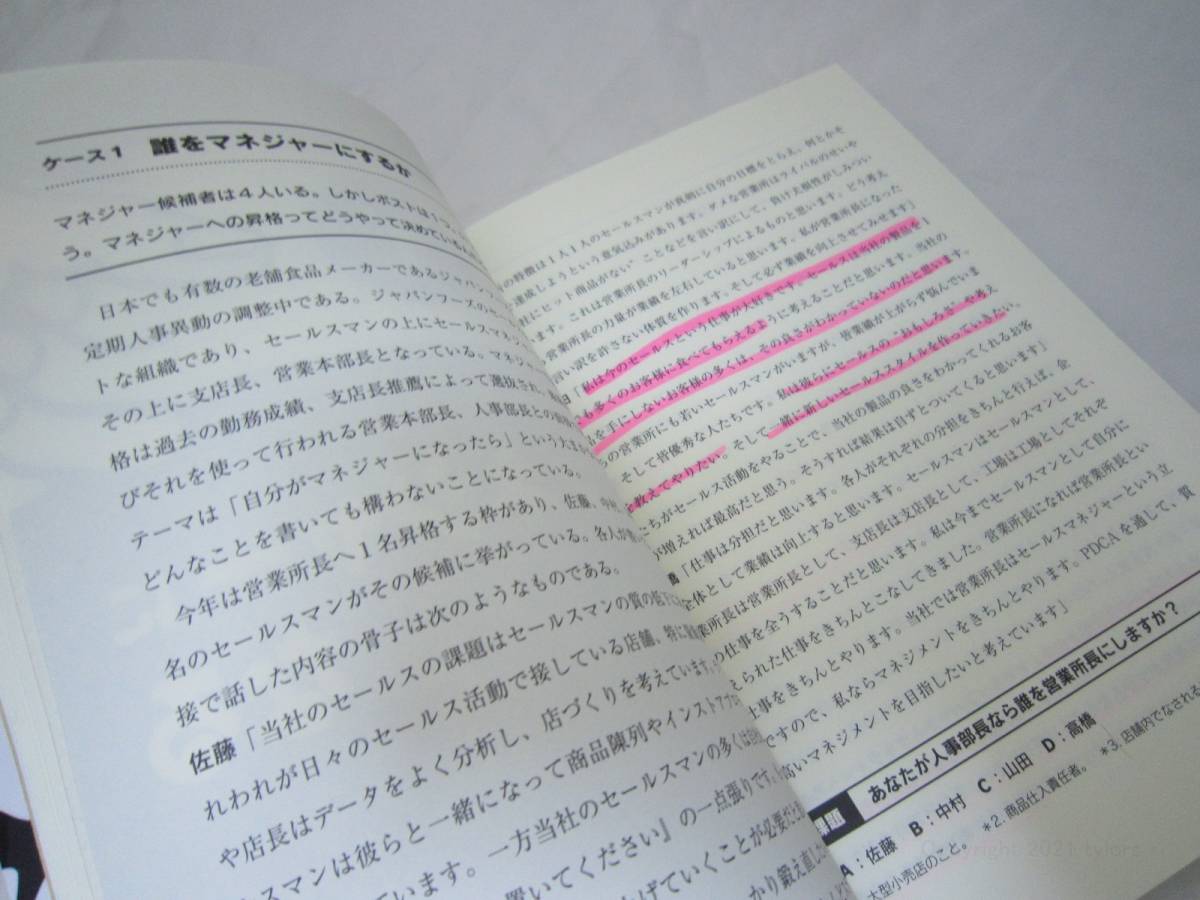 ケース1 誰をマネジャーにするか
マネジャー候補者は4人いる。しかしポストは1
う。マネジャーへの昇格ってどうやって決めているん
日本でも有数の老舗食品メーカーであるジャパン
定期人事異動の調整中である。ジャパンフーズのセー
トな組織であり、セールスマンの上にセールスマネジ
その上に支店長、営業本部長となっている。マネジ
格は過去の勤務成績、支店長推薦によって選抜され
びそれを使って行われる営業本部長、人事部長との面
テーマは「自分がマネジャーになったら」という
どんなことを書いても構わないことになっている。
今年は営業所長へ1名昇格する枠があり、佐藤、中村
名のセールスマンがその候補に挙がっている。各人が
接で話した内容の骨子は次のようなものである。
佐藤「当社のセールスの課題はセールスマンの質の低下
れわれが日々のセールス活動で接している店舗、特に
や店長はデータをよく分析し、店づくりを考えています。
スマンは彼らと一緒になって商品陳列やインストアプロ
ています。一方当社のセールスマンの多くは
置いてください』の一点張りです。
げていくことが必要だと
かり鍛え直し
の特徴は1人1人のセールスマンが真剣に自分の目標をとらえ、何とかそ
達成しようという意気込みがあります。ダメな営業所はライバルのせいや
社にヒット商品がない"ことなどを言い訳にして、負け犬根性がしみつい
ます。これは営業所長のリーダーシップによるものと思います。どう考え
営業所長の力量が業績を左右していると思います。私が営業所長になった
言い訳を許さない体質を作ります。そして必ず業績を向上させてみせます」
田「私は今のセールスという仕事が大好きです。セールスは当社の製品を1
でも多くのお客様に食べてもらえるように考えることだと思います。当社の
品を手にしないお客様の多くは、その良さがわかっていないのだと思います。
の営業所にも若いセールスマンがいますが、皆業績が上がらず悩んでいま
そして皆優秀な人たちです。私は彼らにセールスの"おもしろさ"や考え
を教えてやりたい。そして一緒に新しいセールススタイルを作っていきたい。
たちがセールス活動をやることで、当社の製品の良さをわかってくれるお客
が増えれば最高だと思う。そうすれば結果は自ずとついてくると思います」
「仕事は分担だと思います。各人がそれぞれの分担をきちんと行えば、企
全体として業績は向上すると思います。セールスマンはセールスマンとして、
業所長は営業所長として、支店長は支店長として、工場は工場としてそれぞ
の仕事を全うすることだと思います。私は今までセールスマンとして自分に
えられた仕事をきちんとこなしてきました。営業所長になれば営業所長とい
仕事をきちんとやります。当社では営業所長はセールスマネジャーという立
ですので、私ならマネジメントをきちんとやります。PDCAを通して、質
高いマネジメントを目指したいと考えています」
課題 あなたが人事部長なら誰を営業所長にしますか?
A:佐藤 B:中村 C:山田 D:高橋
大型小売店のこと。 *2. 商品仕入責任者。 *3. 店舗内でなされる